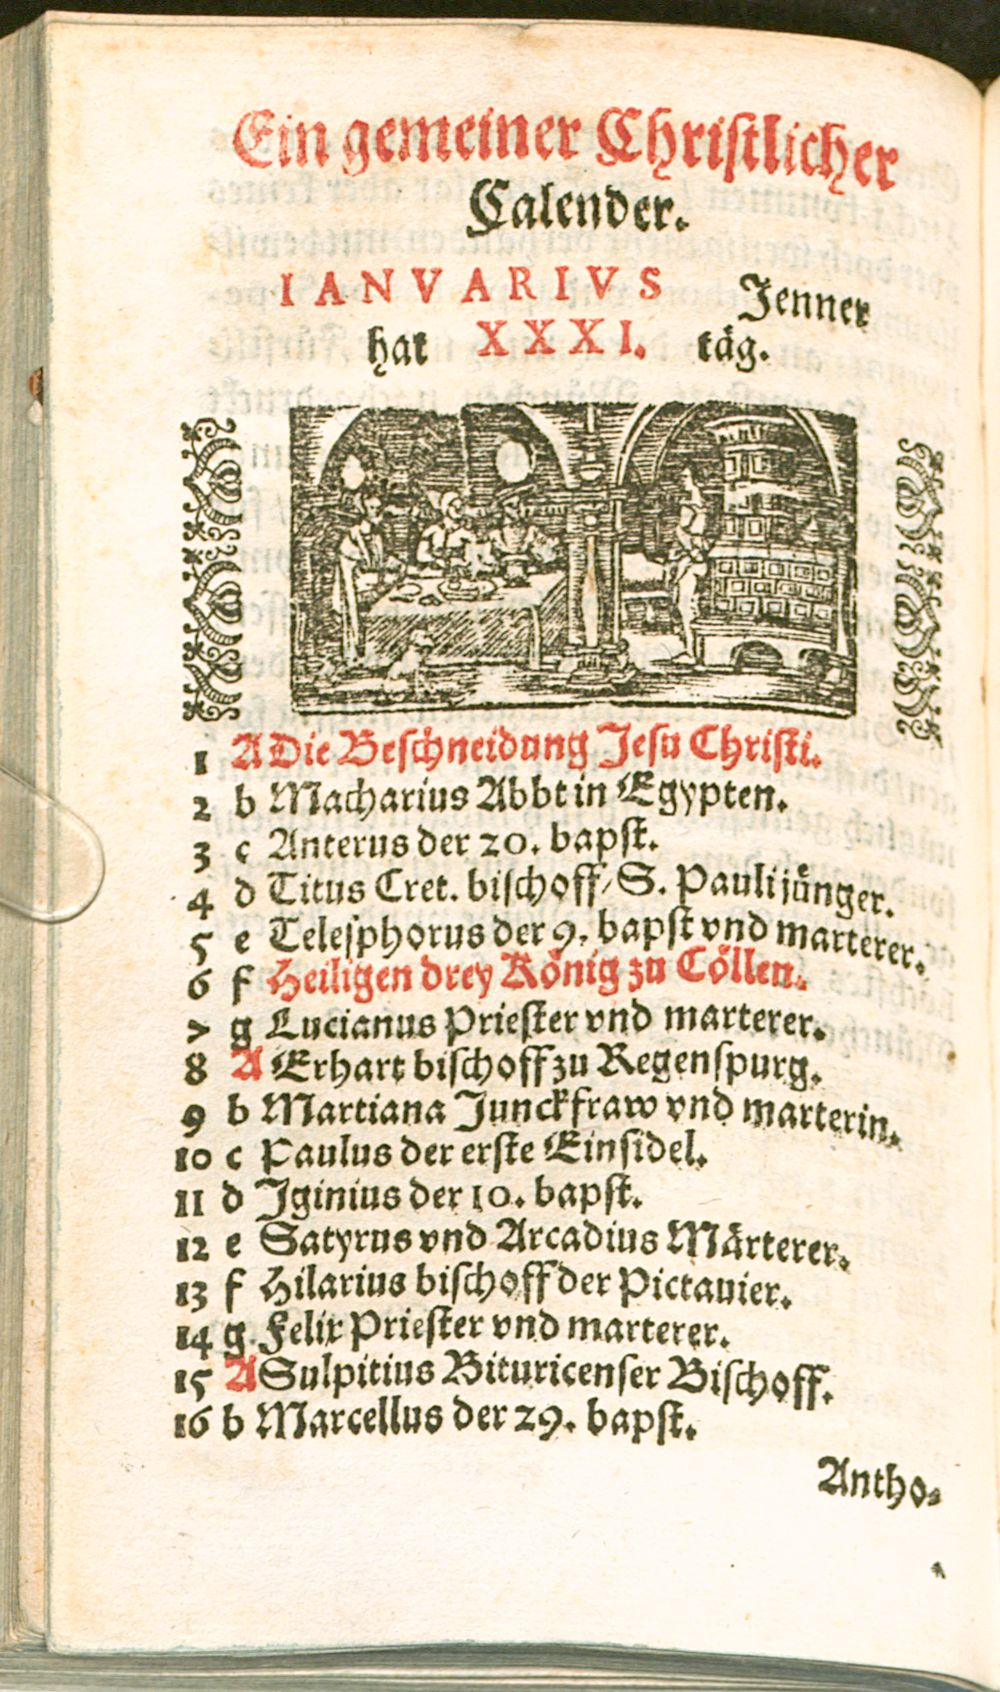 Ein gemeiner Christlicher
Calender.
IANVARIVS Jenner
hat XXXI. täg.
1 A Die Beschneidung Jesu Christi.
2 b Macharius Abbt in Egypten.
3 c Anterus der 20. bapst.
4 d Titus Cret. bischoff/ S. Pauli jünger.
5 e Telesphorus der 9. bapst vnd marterer.
6 f Heiligen drey König zu Cöllen.
7 g Lucianus Priester vnd marterer.
8 A Erhart bischoff zu Regenspurg.
9 b Martiana Junckfraw vnd marterin.
10 c Paulus der erste Einsidel.
11 d Iginius der 10. bapst.
12 e Satyrus vnd Arcadius Märterer.
13 f Hilarius bischoff der Pictauier.
14 g. Felix Priester vnd marterer.
15 A Sulpitius Bituricenser Bischoff.
16 b Marcellus der 29. bapst.
Antho-